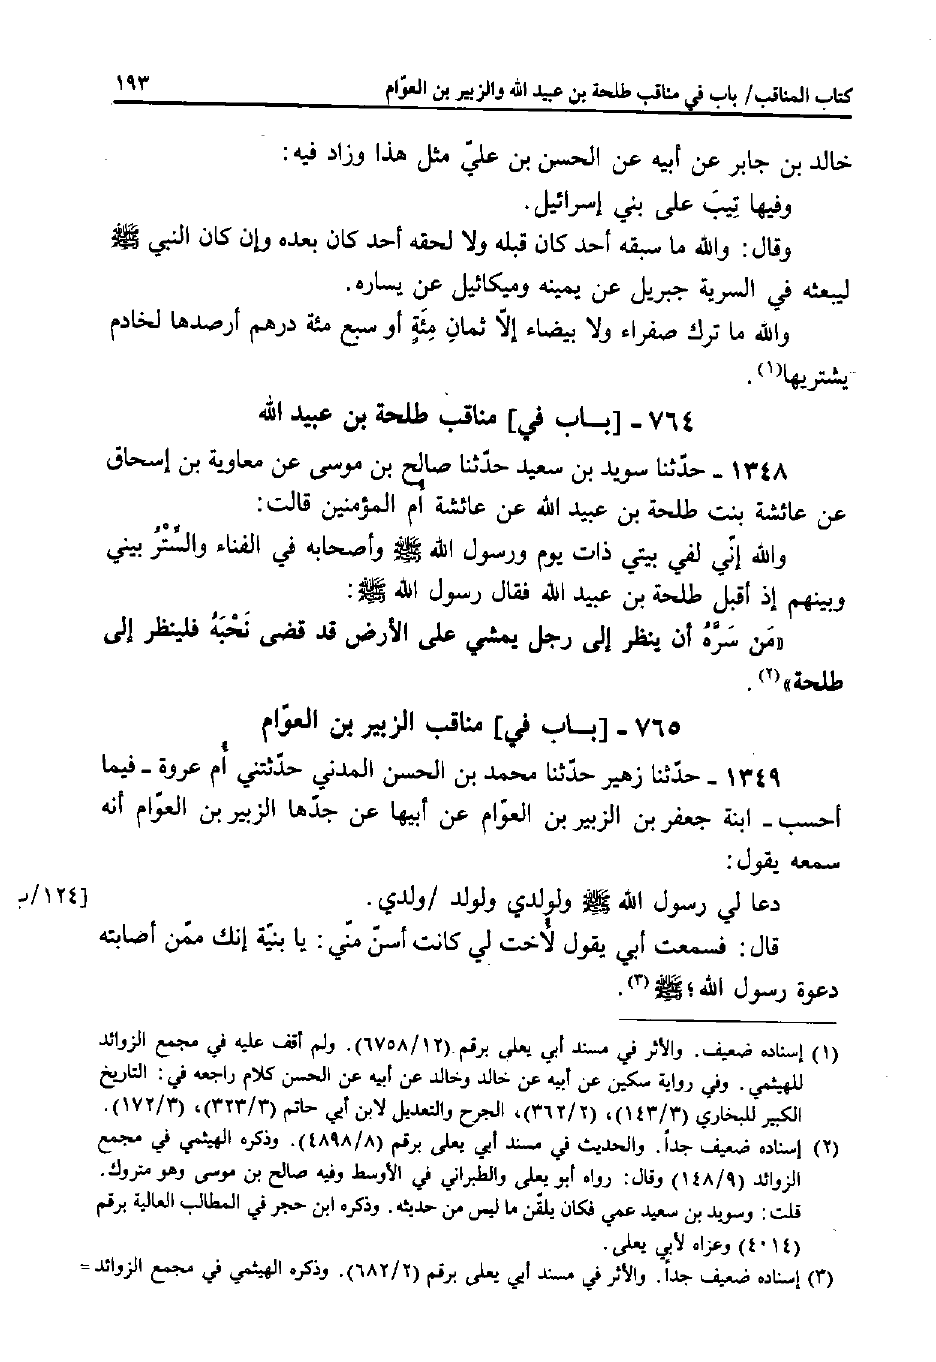 كتاب المناقب/ باب في مناقب طلحة بن عبيد الله والزبير بن العوّام ١٩٣
خالد بن جابر عن أبيه عن الحسن بن عليّ مثل هذا وزاد فيه:
وفيها تِيبَ على بني إسرائيل.
وقال: والله ما سبقه أحد كان قبله ولا لحقه أحد كان بعده وإن كان النبي ﷺ
ليبعثه في السرية جبريل عن يمينه وميكائيل عن يساره.
والله ما ترك صفراء ولا بيضاء إلّا ثمانِ مِئَةٍ أو سبع مئة درهم أرصدها لخادم
يشتريها(١).
٧٦٤ ـ [بـاب في] مناقب طلحة بن عبيد الله
١٣٤٨ ـ حدّثنا سويد بن سعيد حدّثنا صالح بن موسى عن معاوية بن إسحاق
عن عائشة بنت طلحة بن عبيد الله عن عائشة أم المؤمنين قالت:
والله إنّي لفي بيتي ذات يوم ورسول الله ﷺ وأصحابه في الفناء والسِّتْرُ بيني
وبينهم إذ أقبل طلحة بن عبيد الله فقال رسول الله ﷺ:
«مَن سَرَّهُ أن ينظر إلى رجل يمشي على الأرض قد قضى نَحْبَهُ فلينظر إلى
طلحة»(٢).
٧٦٥ ـ [بـاب في] مناقب الزبير بن العوّام
١٣٤٩ ـ حدّثنا زهير حدّثنا محمد بن الحسن المدني حدّثتني أم عروة ـ فيما
أحسب ـ ابنة جعفر بن الزبير بن العوّام عن أبيها عن جدّها الزبير بن العوّام أنه
سمعه يقول:
دعا لي رسول الله ﷺ ولولدي ولولد /ولدي. [١٢٤/ب
قال: فسمعت أبي يقول لأخت لي كانت أسنّ منّي: يا بنيّة إنك ممّن أصابته
دعوة رسول الله؛ ﷺ(٣).
(١) إسناده ضعيف. والأثر في مسند أبي يعلى برقم (٦٧٥٨/١٢). ولم أقف عليه في مجمع الزوائد
للهيثمي. وفي رواية سكين عن أبيه عن خالد وخالد عن أبيه عن الحسن كلام راجعه في: التاريخ
الكبير للبخاري (١٤٣/٣)، (٣٦٢/٢)، الجرح والتعديل لابن أبي حاتم (٣٢٣/٣)، (١٧٢/٣).
(٢) إسناده ضعيف جداً. والحديث في مسند أبي يعلى برقم (٤٨٩٨/٨). وذكره الهيثمي في مجمع
الزوائد (١٤٨/٩) وقال: رواه أبو يعلى والطبراني في الأوسط وفيه صالح بن موسى وهو متروك.
قلت: وسويد بن سعيد عمي فكان يلقّن ما ليس من حديثه. وذكره ابن حجر في المطالب العالية برقم
(٤٠١٤) وعزاه لأبي يعلى.
(٣) إسناده ضعيف جداً. والأثر في مسند أبي يعلى برقم (٦٨٢/٢). وذكره الهيثمي في مجمع الزوائد =